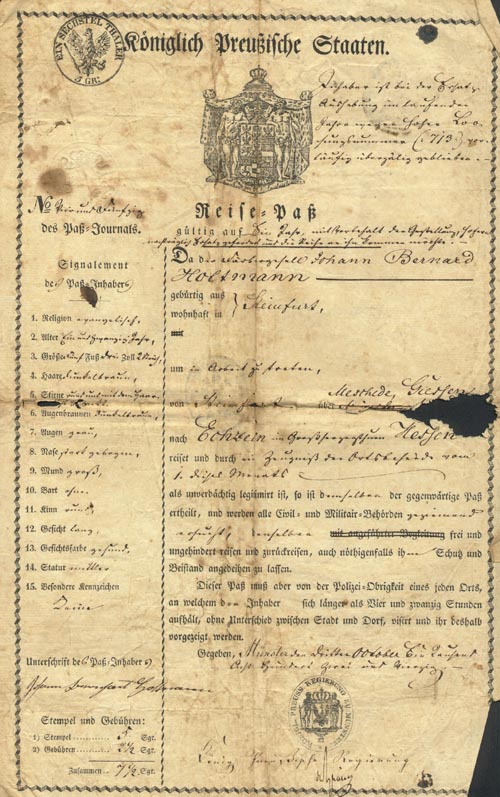 EIN SECHSTEL THALER
5 GR:
Königlich Preußische Staaten.
Inhaber ist bei der Ersatz-
Aushebung im laufenden
Jahre wegen hoher Loo-
sungsnummer (713)
No vier und
des Paß-Journals.
Reise-Paß
gültig auf Ein Jahr,
Signalement
des Paß-Inhabers
Da der Johann Bernard
Holtmann
gebürtig aus
wohnhaft in } Steinfurt,
1. Religion evangelisch,
2. Alter Jahr,
3. Größe fünf Fuß drei Zoll
4. Haare dunkelbraun,
5. Stirne
6. Augenbraunen dunkelbraun,
7. Augen grau,
8. Nase gebogen,
9. Mund groß,
10. Bart ohne
11. Kinn rund,
12. Gesicht lang
13. Gesichtsfarbe gesund,
14. Statur mittler
15. Besondere Kennzeichen
Keine
um in Arbeit zu treten,
von Steinfurt über Meschede, Giessen
nach Echzell in Großherzogthum Hessen
reiset und durch ein Zeugniß der Ortsbehörde vom
1. dieses Monats
als unverdächtig legitimirt ist, so ist demselben der gegenwärtige Paß
ertheilt, und werden alle Civil- und Militair-Behörden geziemend
ersucht, denselben mit angeführter Begleitung frei und
ungehindert reisen und zurückreisen, auch nöthigenfalls ihm Schutz und
Beistand angedeihen zu lassen.
Dieser Paß muß aber von der Polizei-Obrigkeit eines jeden Orts,
an welchem der Inhaber sich länger als Vier und zwanzig Stunden
aufhält, ohne Unterschied zwischen Stadt und Dorf, visirt und ihr deshalb
vorgezeigt werden.
Gegeben, Münster den dritten October Ein Tausend
Acht Hundert Zwei und Vierzig
Unterschrift des Paß-Inhabers
Johann Bernhard Holtmann
Stempel und Gebühren:
1) Stempel 5 Sgr.
2) Gebühren 2½ Sgr.
Zusammen 7½ Sgr.
Königl. Preußische Regierung